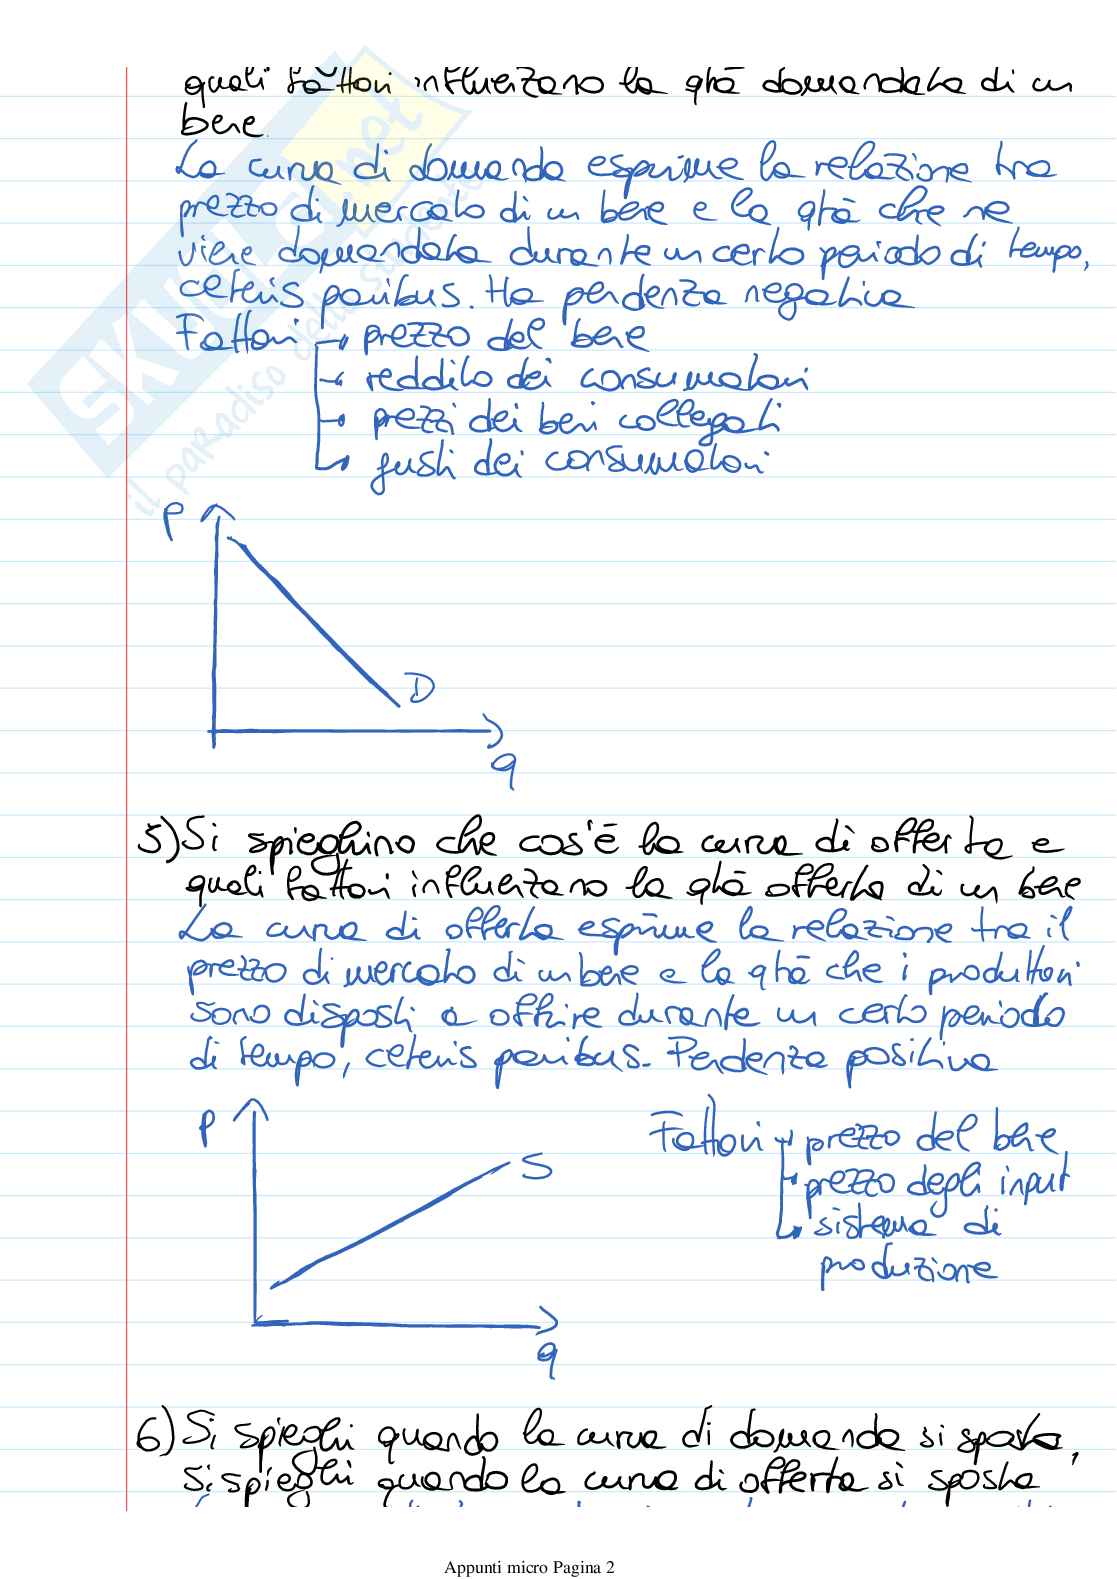 quali fattori influenzano la qtà domandata di un
bene.
La curva di domanda esprime la relazione tra
prezzo di mercato di un bene e la qtà che ne
viene domandata durante un certo periodo di tempo,
ceteris paribus. Ha pendenza negativa
Fattori → prezzo del bene
→ reddito dei consumatori
→ prezzi dei beni collegati
→ gusti dei consumatori
P
D
q
5) Si spieghino che cos'è la curva di offerta e
quali fattori influenzano la qtà offerta di un bene
La curva di offerta esprime la relazione tra il
prezzo di mercato di un bene e la qtà che i produttori
sono disposti a offrire durante un certo periodo
di tempo, ceteris paribus. Pendenza positiva
P
S
q
Fattori → prezzo del bene
→ prezzo degli input
→ sistema di
produzione
6) Si spieghi quando la curva di domanda si sposta,
si spieghi quando la curva di offerta si sposta
Appunti micro Pagina 2
SKUOLA.net
il paradiso dello studente